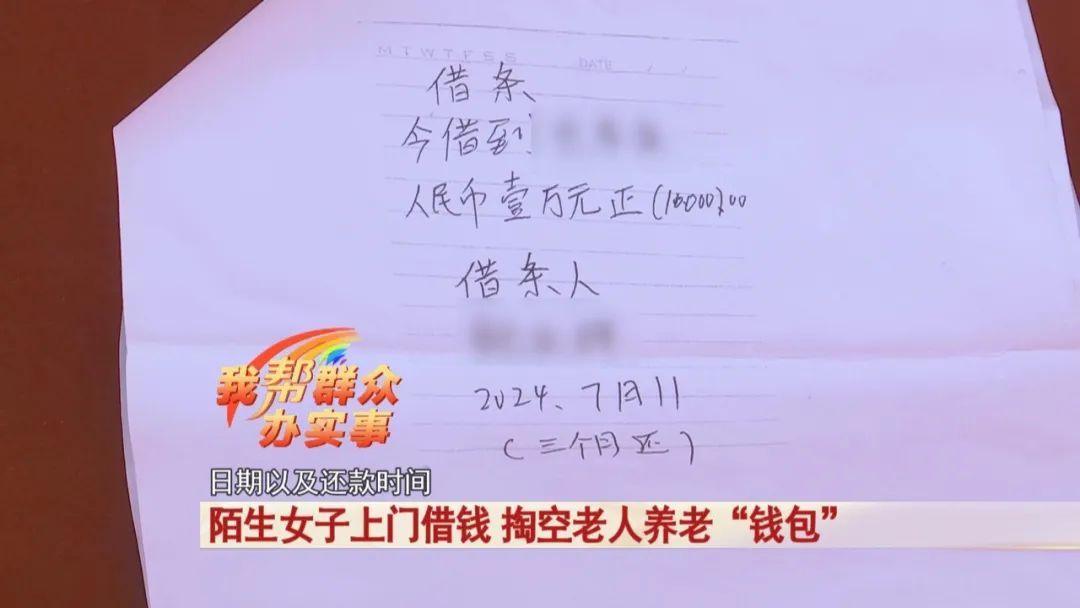 M T W T F S S DATE / /
借条
今借到
人民币壹万元正(10000.00
借条人
2024、7月11
(三个月还)
我帮群众
办实事
日期以及还款时间
陌生女子上门借钱 掏空老人养老“钱包”